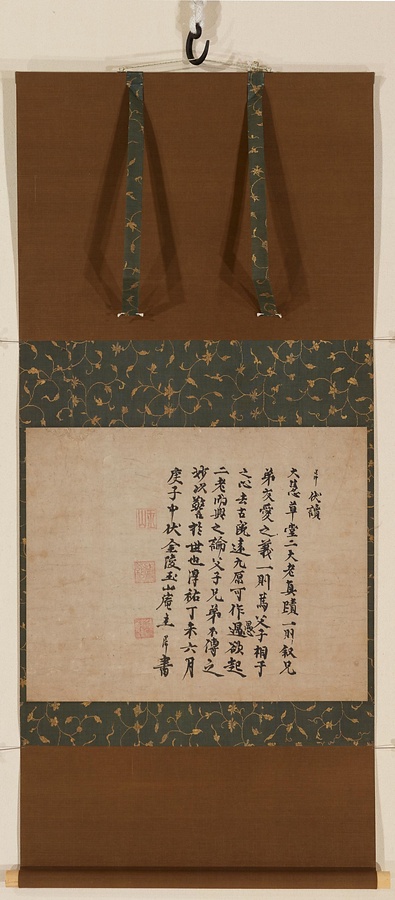 伏讀
大慧草堂二大老真蹟一則叙兄
弟友愛之義一則萬父子相予
之心去古寖遠九原可作愚過欲起
二老而與之論父子兄弟不傳之
妙以警於世也淳祐丁未六月
庚子中伏金陵玉山庵主昇書